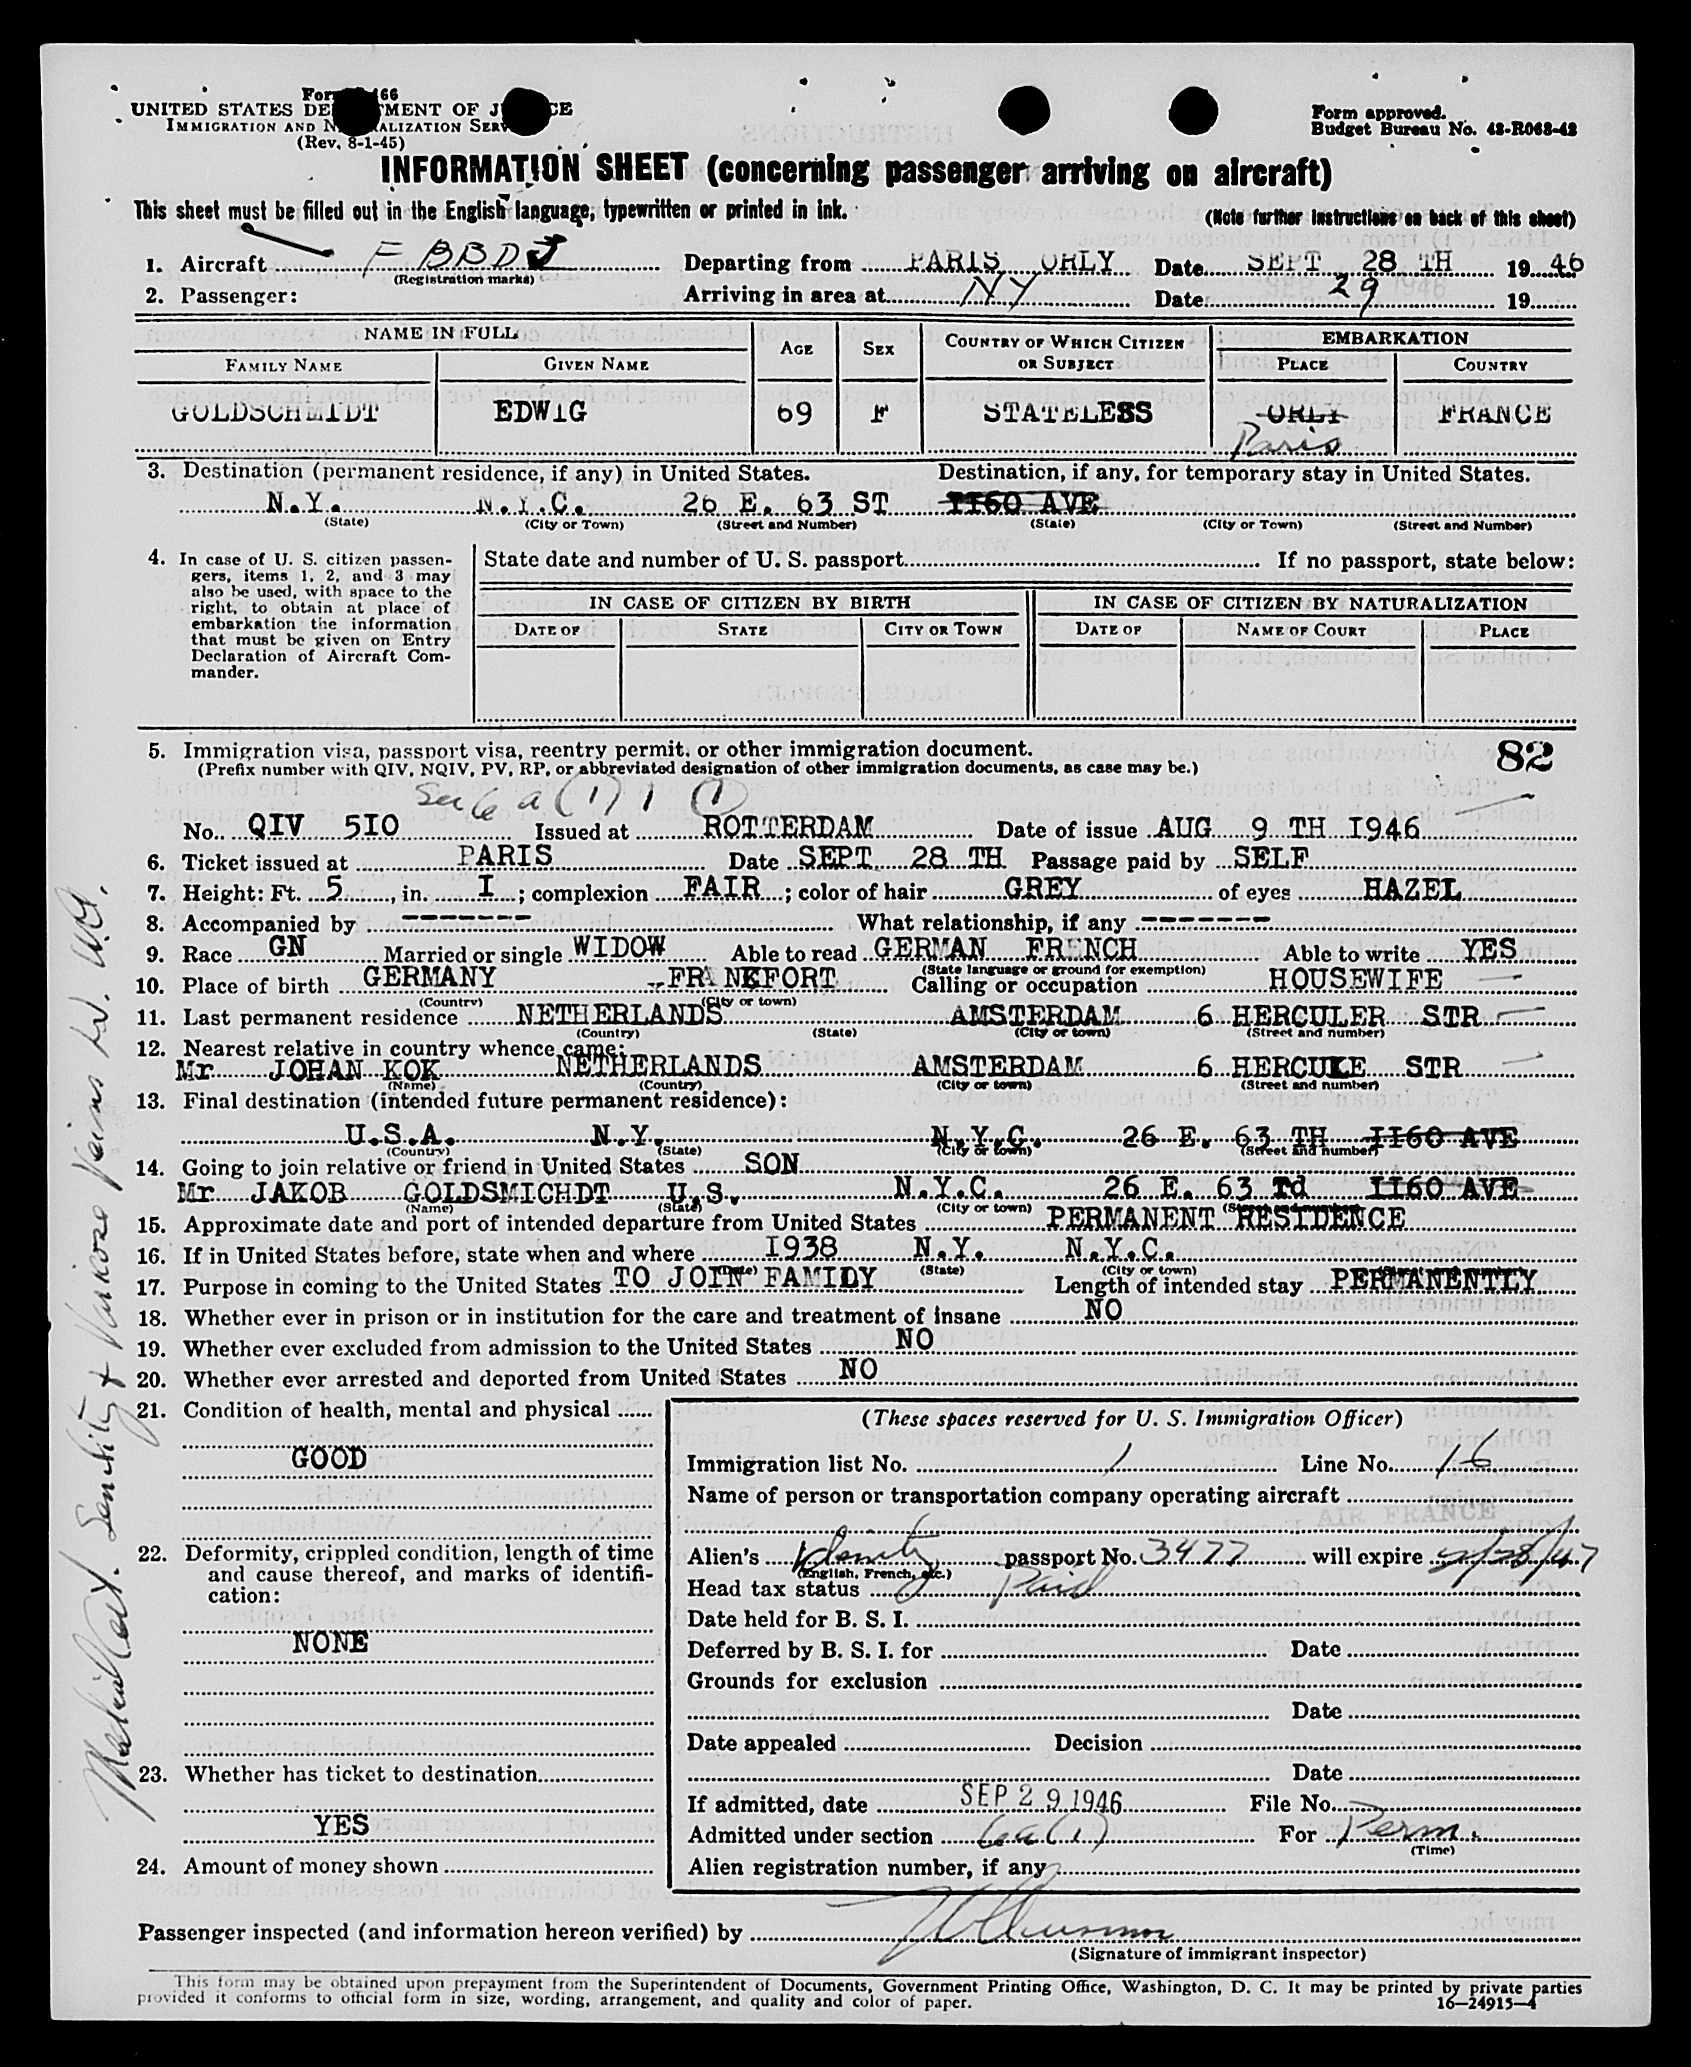 Form 466
UNITED STATES DEPARTMENT OF JUSTICE
IMMIGRATION AND NATURALIZATION SERVICE
(Rev. 8-1-45)
Form approved.
Budget Bureau No. 43-R068-42
INFORMATION SHEET (concerning passenger arriving on aircraft)
This sheet must be filled out in the English language, typewritten or printed in ink.
(Note further instructions on back of this sheet)
1. Aircraft F BBDJ Departing from PARIS ORLY Date SEPT 28 TH 19 46
(Registration marks)
2. Passenger: Arriving in area at NY Date 29 19
NAME IN FULL AGE SEX COUNTRY OF WHICH CITIZEN OR SUBJECT EMBARKATION
FAMILY NAME GIVEN NAME PLACE COUNTRY
GOLDSCHMIDT EDWIG 69 F STATELESS ORLY FRANCE
Paris
3. Destination (permanent residence, if any) in United States. Destination, if any, for temporary stay in United States.
N.Y. N.Y.C. 26 E. 63 ST II60 AVE
(State) (City or Town) (Street and Number) (State) (City or Town) (Street and Number)
4. In case of U. S. citizen passengers, items 1, 2, and 3 may also be used, with space to the right, to obtain at place of embarkation the information that must be given on Entry Declaration of Aircraft Commander.
State date and number of U. S. passport If no passport, state below:
IN CASE OF CITIZEN BY BIRTH IN CASE OF CITIZEN BY NATURALIZATION
DATE OF STATE CITY OR TOWN DATE OF NAME OF COURT PLACE
5. Immigration visa, passport visa, reentry permit, or other immigration document. 82
(Prefix number with QIV, NQIV, PV, RP, or abbreviated designation of other immigration documents, as case may be.)
Sec 6 a (1) 1 (1)
No. QIV 5IO Issued at ROTTERDAM Date of issue AUG 9 TH I946
6. Ticket issued at PARIS Date SEPT 28 TH Passage paid by SELF
7. Height: Ft. 5, in. I; complexion FAIR; color of hair GREY of eyes HAZEL
8. Accompanied by -------- What relationship, if any --------
9. Race GN Married or single WIDOW Able to read GERMAN FRENCH Able to write YES
(State language or ground for exemption)
10. Place of birth GERMANY FRANKFORT Calling or occupation HOUSEWIFE
(Country) (City or town)
11. Last permanent residence NETHERLANDS AMSTERDAM 6 HERCULER STR
(Country) (State) (City or town) (Street and number)
12. Nearest relative in country whence came:
Mr JOHAN KOK NETHERLANDS AMSTERDAM 6 HERCULE STR
(Name) (Country) (City or town) (Street and number)
13. Final destination (intended future permanent residence):
U.S.A. N.Y. N.Y.C. 26 E. 63 TH II60 AVE
(Country) (State) (City or town) (Street and number)
14. Going to join relative or friend in United States SON
Mr JAKOB GOLDSMICHDT U.S. N.Y.C. 26 E. 63 Td II60 AVE
(Name) (State) (City or town)
15. Approximate date and port of intended departure from United States PERMANENT RESIDENCE
16. If in United States before, state when and where I938 N.Y. N.Y.C.
(State) (City or town)
17. Purpose in coming to the United States TO JOIN FAMILY Length of intended stay PERMANENTLY
18. Whether ever in prison or in institution for the care and treatment of insane NO
19. Whether ever excluded from admission to the United States NO
20. Whether ever arrested and deported from United States NO
21. Condition of health, mental and physical
GOOD
22. Deformity, crippled condition, length of time and cause thereof, and marks of identification:
NONE
23. Whether has ticket to destination
YES
24. Amount of money shown
(These spaces reserved for U. S. Immigration Officer)
Immigration list No. 1 Line No. 16
Name of person or transportation company operating aircraft
AIR FRANCE
Alien's Identity passport No. 3477 will expire 2/28/47
(English, French, etc.)
Head tax status Paid
Date held for B. S. I.
Deferred by B. S. I. for Date
Grounds for exclusion
Date
Date appealed Decision
Date
If admitted, date SEP 29 1946 File No.
Admitted under section 6a(1) For Perm.
(Time)
Alien registration number, if any
Passenger inspected (and information hereon verified) by
(Signature of immigrant inspector)
This form may be obtained upon prepayment from the Superintendent of Documents, Government Printing Office, Washington, D. C. It may be printed by private parties
provided it conforms to official form in size, wording, arrangement, and quality and color of paper.
16—24915-4
Medical Cert. Senility & Varicose Veins